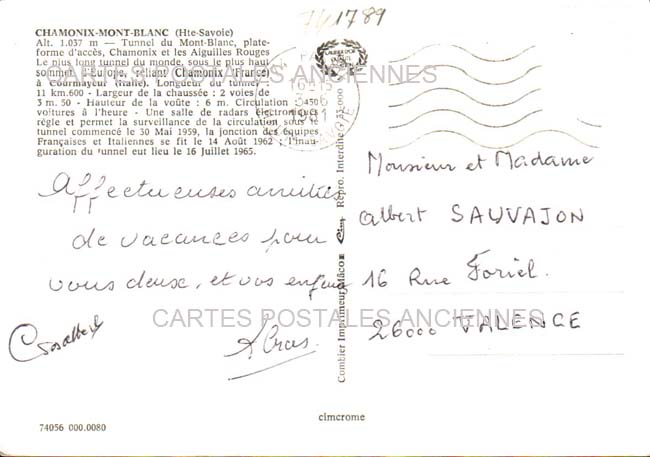 741789
CHAMONIX-MONT-BLANC (Hte-Savoie)
Alt. 1.037 m — Tunnel du Mont-Blanc, plate-
forme d'accès, Chamonix et les Aiguilles Rouges
Le plus long tunnel du monde, sous le plus haut
sommet d'Europe, reliant Chamonix (France)
à Courmayeur (Italie). Longueur du tunnel :
11 km.600 - Largeur de la chaussée : 2 voies de
3 m. 50 - Hauteur de la voûte : 6 m. Circulation : 450
voitures à l'heure - Une salle de radars électroniques
règle et permet la surveillance de la circulation sous le
tunnel commencé le 30 Mai 1959, la jonction des équipes
Françaises et Italiennes se fit le 14 Août 1962 ; l'inau-
guration du tunnel eut lieu le 16 Juillet 1965.
CARTES POSTALES ANCIENNES
16-15
1981
Affectueuses amitiés
de vacances pour
vous deux, et vos enfants
Combier Imprimeur Mâcon Cim Repro. Interdite
Monsieur et Madame
Albert SAUVAJON
16 Rue Foriel.
26000 VALENCE
CARTES POSTALES ANCIENNES
cimcrome
74056 000.0080